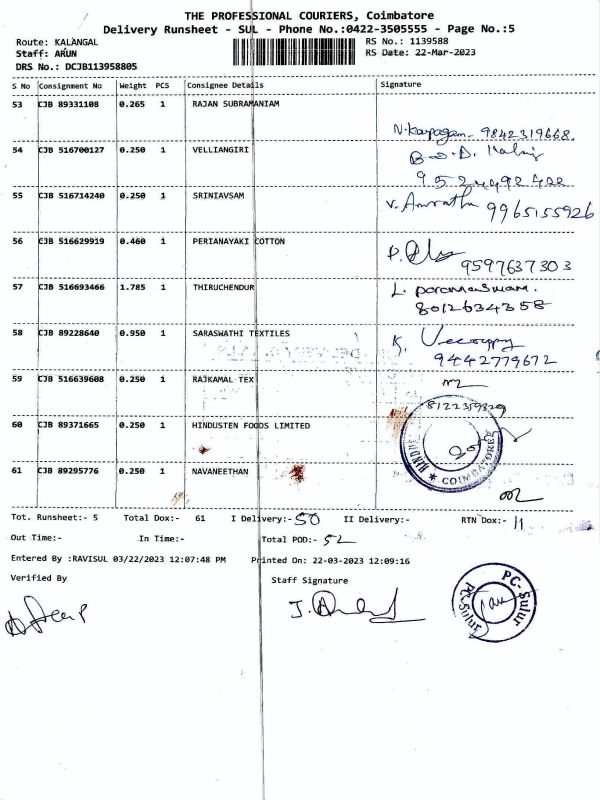 THE PROFESSIONAL COURIERS, Coimbatore
Delivery Runsheet - SUL - Phone No.:0422-3505555 - Page No.:5
Route: KALANGAL
RS No.: 1139588
Staff: ARUN
RS Date: 22-Mar-2023
DRS No.: DCJB113958805
S No Consignment No Weight PCS Consignee Details Signature
53 CJB 89331108 0.265 1 RAJAN SUBRAMANIAM
N.Karpagam- 9842319668.
54 CJB 516700127 0.250 1 VELLIANGIRI
55 CJB 516714240 0.250 1 SRINIAVSAM
V. Amrutha 9965155926
56 CJB 516629919 0.460 1 PERIANAYAKI COTTON
9597637303
57 CJB 516693466 1.785 1 THIRUCHENDUR
L. Paramaswam.
8012634358
58 CJB 89228640 0.950 1 SARASWATHI TEXTILES
K.
9442779672
59 CJB 516639608 0.250 1 RAJKAMAL TEX
8122359829
60 CJB 89371665 0.250 1 HINDUSTEN FOODS LIMITED
COIMBATORE
61 CJB 89295776 0.250 1 NAVANEETHAN
Tot. Runsheet:- 5 Total Dox:- 61 I Delivery:- 50 II Delivery:- RTN Dox:- 11
Out Time:- In Time:- Total POD:- 52
Entered By :RAVISUL 03/22/2023 12:07:48 PM Printed On: 22-03-2023 12:09:16
Verified By Staff Signature
PC-Sulur
PC-Sulur